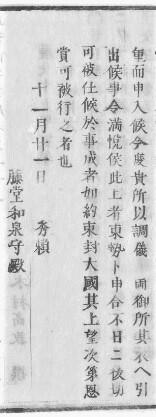 重而申入候今度貴所以調儀 両御所其表へ引
出候事令満悦候此上者東勢ト申合不日ニ後切
可被仕候於事成者如約束封大國其上望次第恩
賞可被行之者也
十一月廿一日 秀頼
藤堂和泉守殿